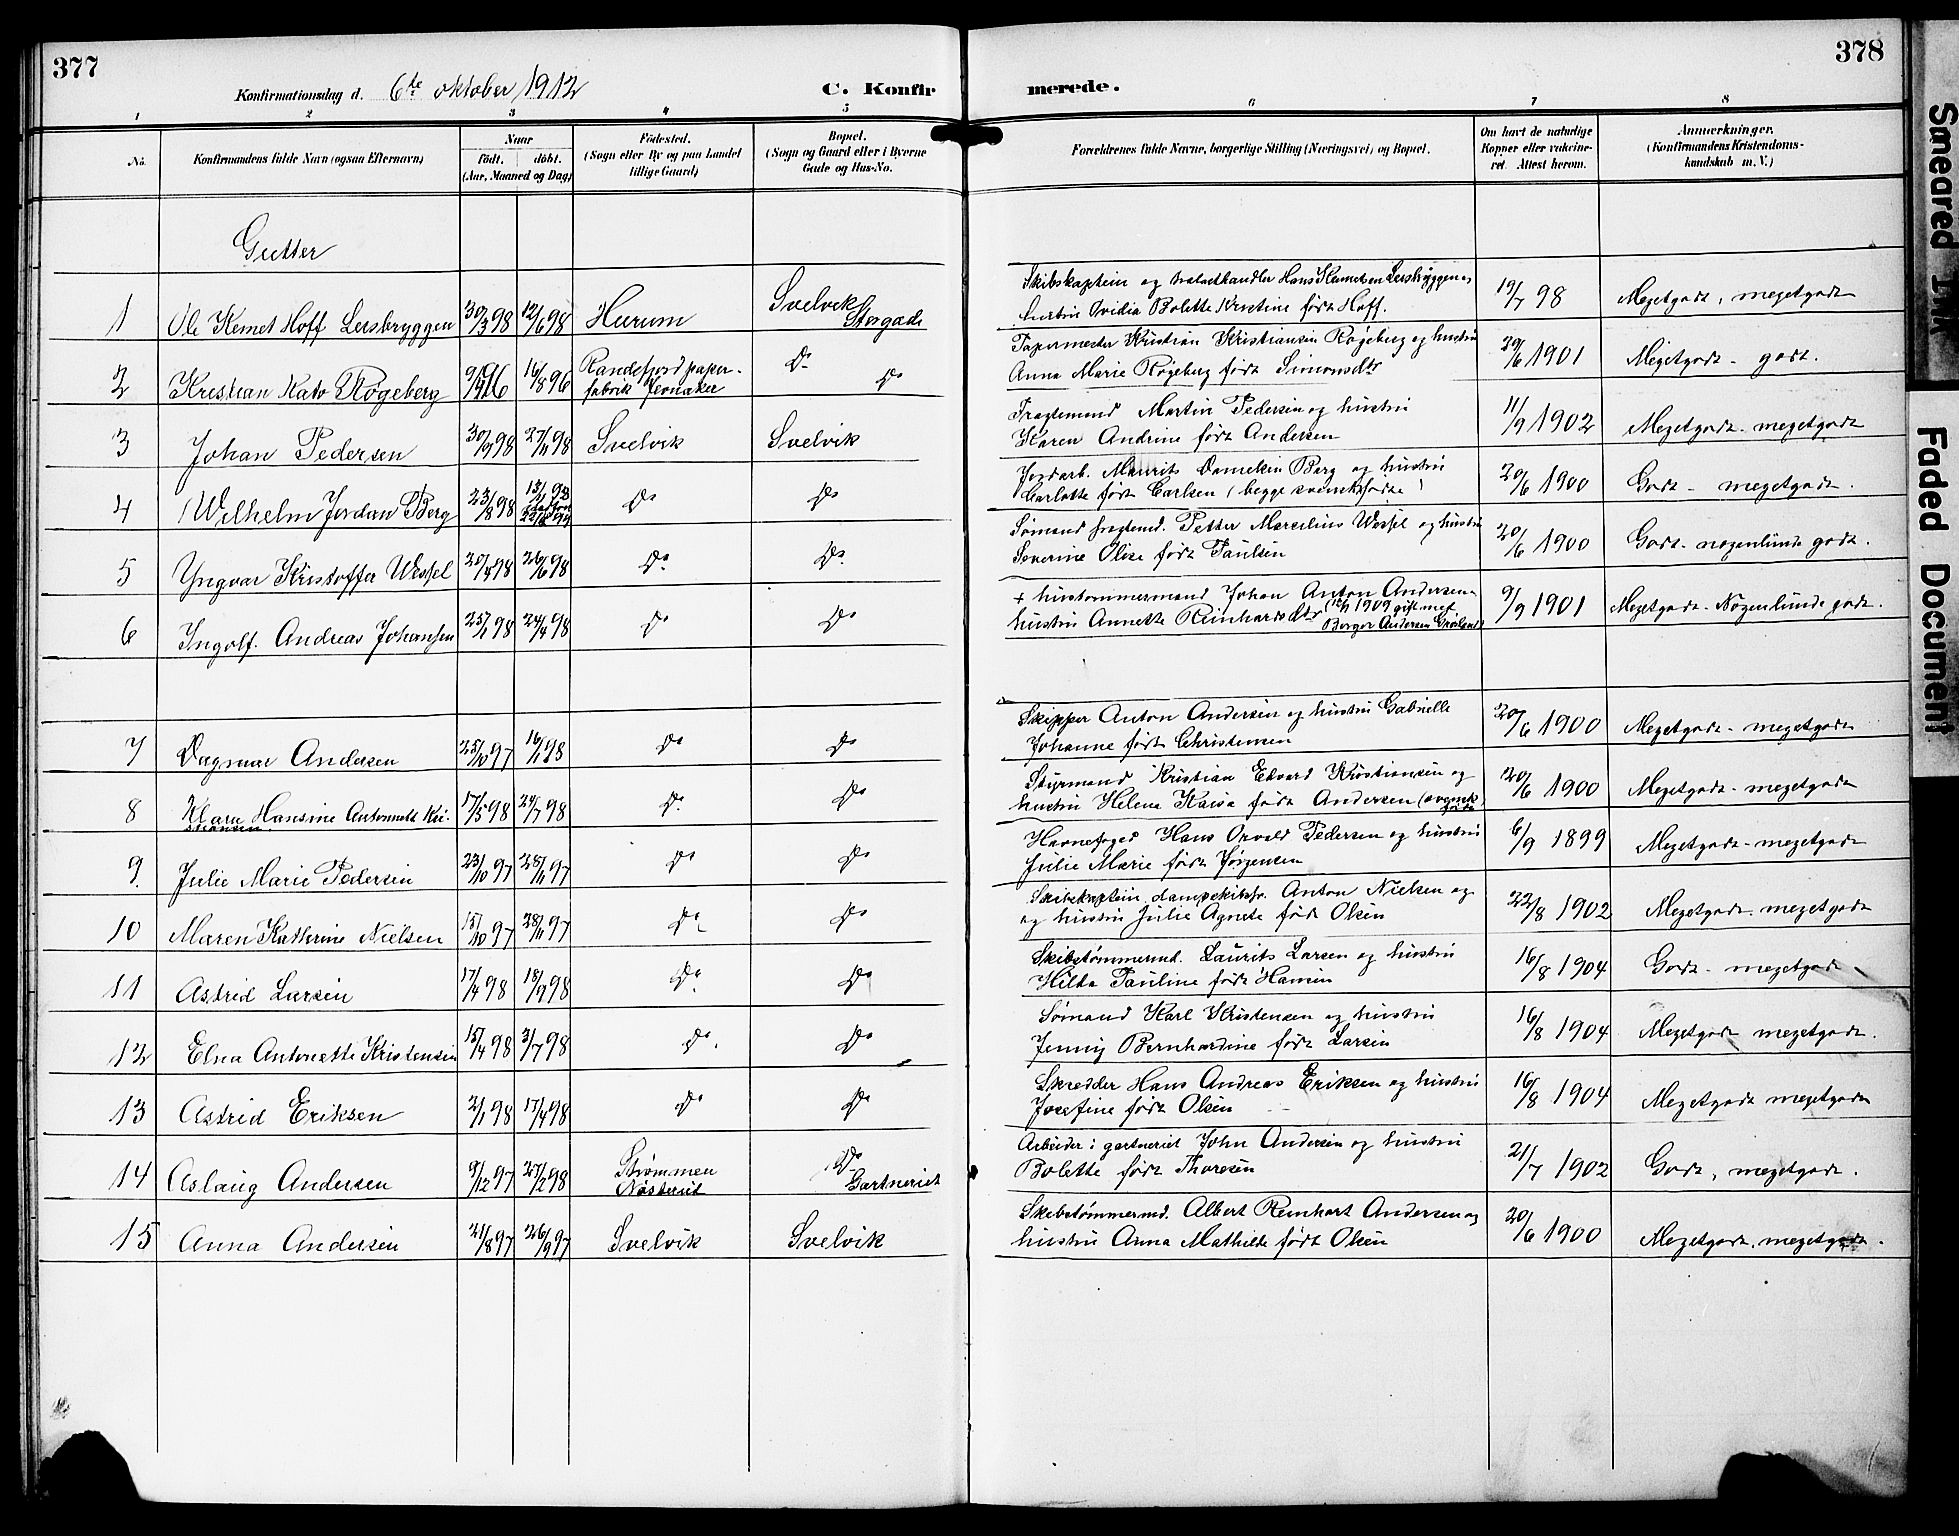 377
378
Konfirmationsdag d. 6te oktober 1912
C. Konfirmerede.
1 2 3 4 5 6 7 8
No.
Konfirmandens fulde Navn (ogsaa Efternavn)
Naar
født. døbt.
(Aar, Maaned og Dag)
Fødested.
(Sogn eller By og paa Landet
tillige Gaard)
Bopæl.
(Sogn og Gaard eller i Byerne
Gade og Hus-No.
Forældrenes fulde Navne, borgerlige Stilling (Næringsvei) og Bopæl.
Om havt de naturlige
Kopper eller vakcine-
ret. Attest herom.
Anmærkninger.
(Konfirmandens Kristendoms-
kundskab m. V.)
Gutter
1 Ole Kemet Hoff Lersbryggen 30/3 98 12/6 98 Hurum Svelvik Storgade
Skibskaptein og Hans Lersbryggen og
hustru Ovidia Bolette Kristine født Hoff. 19/7 98 Megetgodt, megetgodt
2 Kristian Kato Røgeberg 16/8 96 Randsfjord papir-
fabrik Jevnaker Do Do
Papermester Kristian Kristiansen Røgeberg og hustru
Anna Marie Røgeberg født Simonsdtr 20/6 1901 Megetgodt - godt.
3 Johan Pedersen 30/9 98 27/11 98 Svelvik Svelvik
Fragtemand Martin Pedersen og hustru
Karen Andrine født Andersen 11/9 1902 Megetgodt - megetgodt
4 Wilhelm Jordan Berg 23/8 98 Do Do
Jordarb. Maurits Berg og hustru
Carlotte født Carlsen (begge svenskfødte) 20/6 1900 Godt - megetgodt.
5 Yngvar Kristoffer Wessel 20/4 98 26/6 98 Do Do
Sømand fragtemd. Petter Marcelius Wessel og hustru
Severine Olise født Paulsen 20/6 1900 Godt - nogenlunde godt.
6 Ingolf. Andreas Johansen 25/1 98 24/4 98 Do Do
+ hustømmermand Johan Anton Andersen
hustru Annette Reinhardsdtr (1909 gift med
Berger Andersen) 9/9 1901 Megetgodt - Nogenlunde godt.
7 Dagmar Andersen 25/10 97 16/1 98 Do Do
Skipper Anton Andersen og hustru Gabrielle
Johanne født Christensen 20/6 1900 Megetgodt - megetgodt
8 Klara Hansine Antonnette Kri-
stiansen. 17/5 98 24/7 98 Do Do
Styrmand Kristian Edvard Kristiansen og
hustru Helena Kaisa født Andersen (svensk
født) 20/6 1900 Megetgodt - megetgodt
9. Julie Marie Pedersen 23/10 97 28/11 97 Do Do
Havnefoged Hans Osvald Pedersen og hustru
Julie Marie født Jørgensen 6/9 1899 Megetgodt - megetgodt
10 Maren Kathrine Nielsen 15/10 97 28/11 97 Do Do
Skibskaptein, dampskibsf. Anton Nielsen og
og hustru Julie Agnete født Olsen 22/8 1902 Megetgodt. megetgodt
11 Astrid Larsen 17/4 98 18/9 98 Do Do
Skibstømmermd. Laurits Larsen og hustru
Hilda Pauline født Hansen 16/8 1904 Godt - megetgodt
12 Elna Antonette Kristensen 15/4 98 31/7 98 Do Do
Sømand Karl Kristensen og hustru
Jenny Bernhardine født Larsen 16/8 1904 Megetgodt megetgodt.
13 Astrid Eriksen 2/1 98 17/4 98 Do Do
Skredder Hans Andreas Eriksen og hustru
Josefine født Olsen 16/8 1904 Megetgodt megetgodt
14 Aslaug Andersen 9/12 97 27/2 98 Strømmen
Nøsteriet Do Gartneriet
Arbeider i gartneriet John Andersen og hustru
Bolette født Thoresen 21/7 1902 Godt, megetgodt.
15 Anna Andersen 21/8 97 26/9 97 Svelvik Svelvik
Skibstømmermd. Albert Reinhart Andersen og
hustru Anna Mathilde født Olsen 20/6 1900 Megetgodt. megetgodt.
Smeared Ink
Faded Document